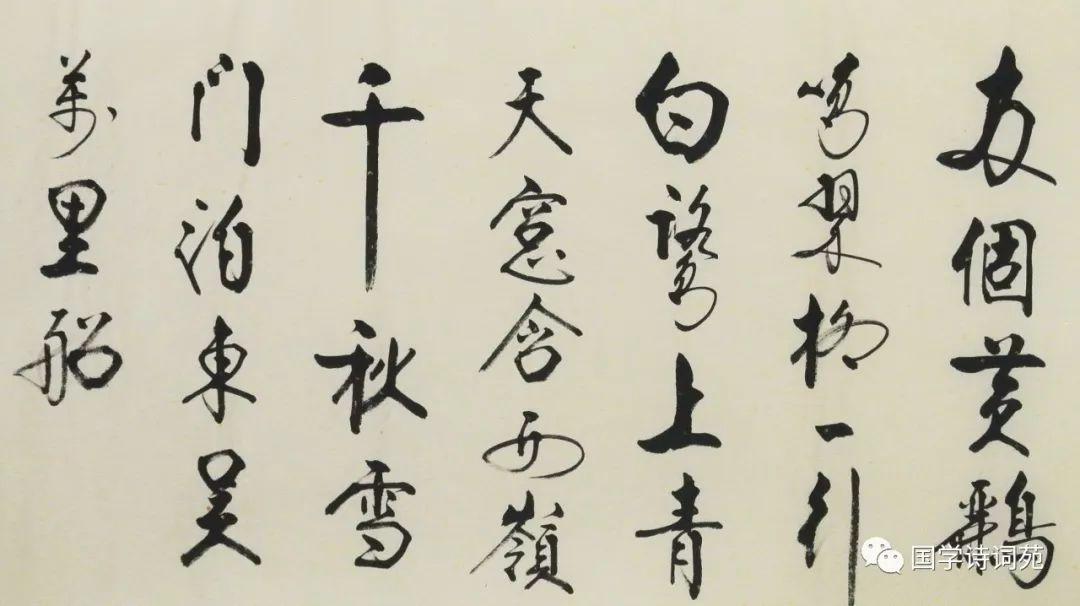 兩個黄鸝
鳴翠柳一行
白鷺上青
天窓含西嶺
千秋雪
門泊東吴
萬里船
国学诗词苑